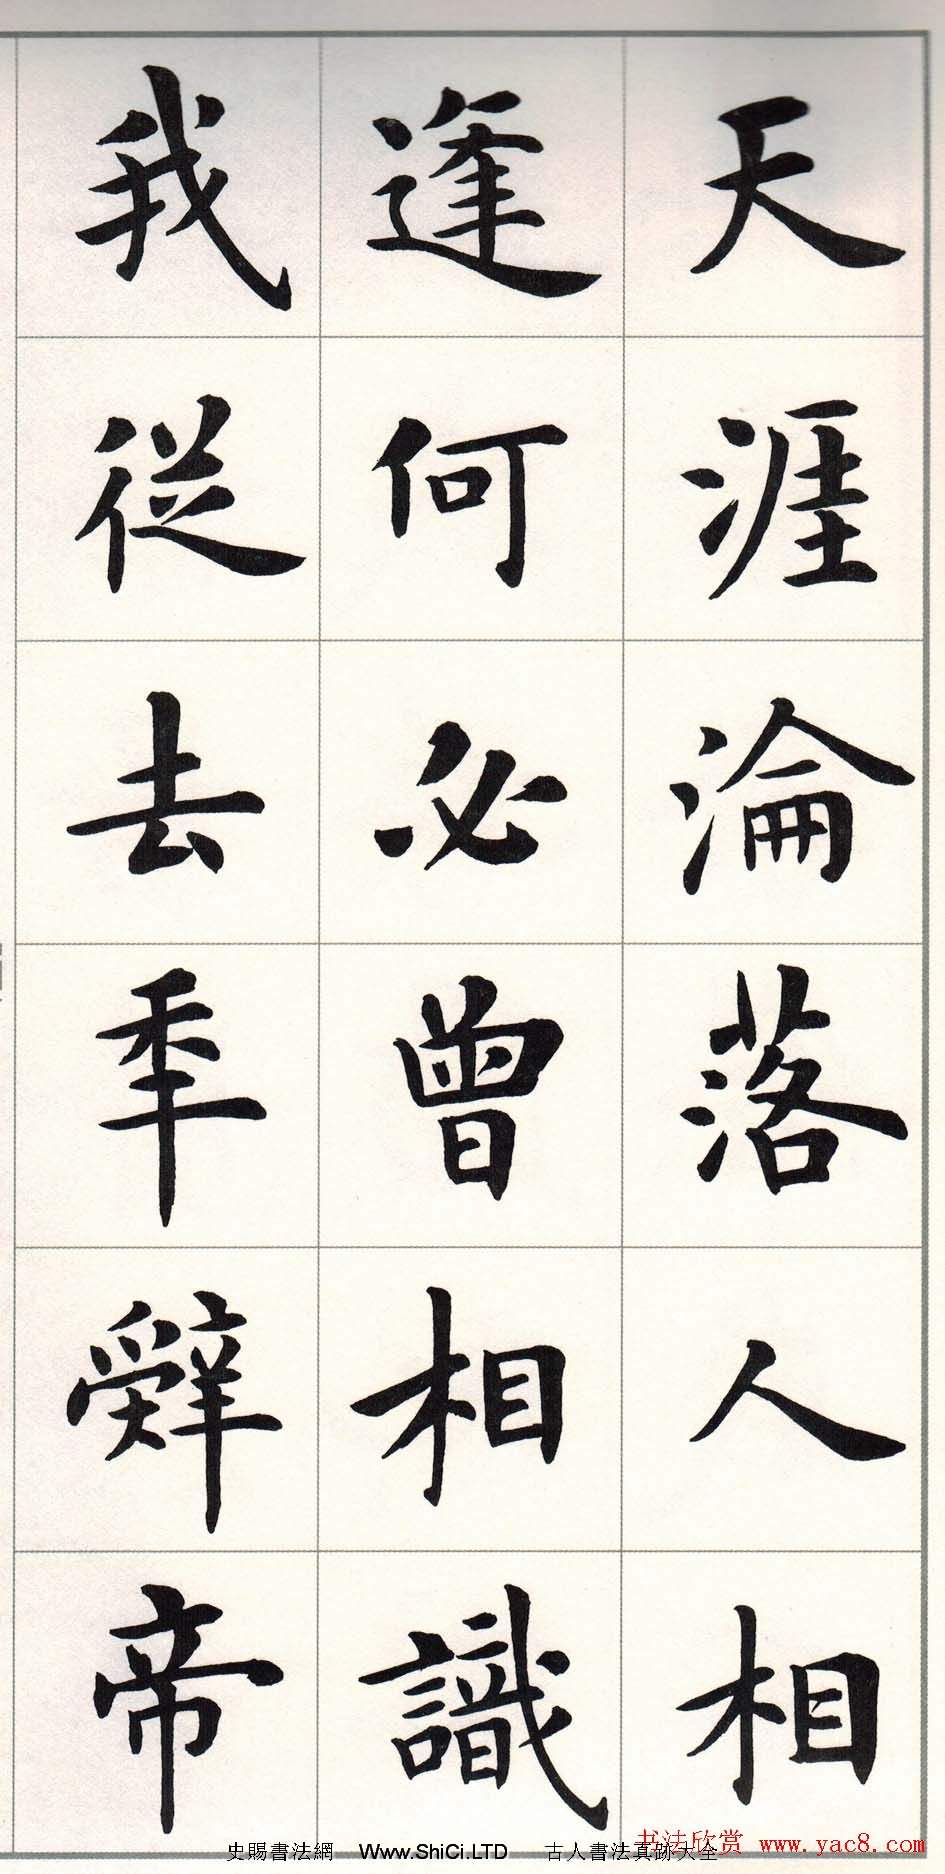 天涯淪落人相
逢何必曾相識
我從去秊辤帝
史賜書法網 Www.ShiCi.LTD 古人書法真跡大全
书法欣赏 www.yac8.com